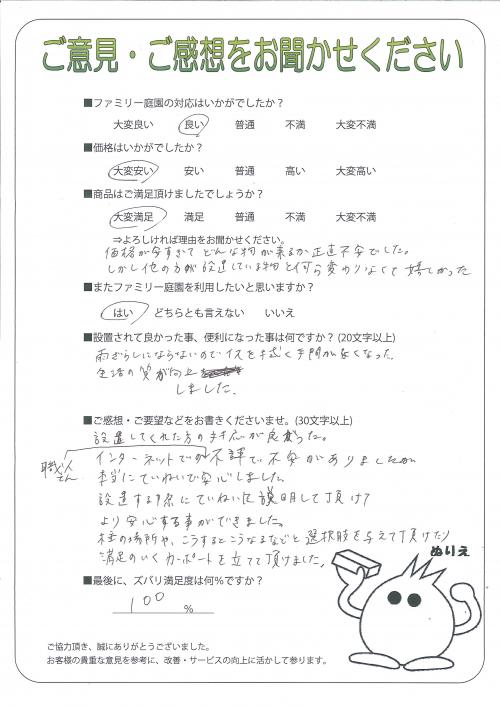 ご意見・ご感想をお聞かせください
■ファミリー庭園の対応はいかがでしたか？
大変良い 良い 普通 不満 大変不満
■価格はいかがでしたか？
大変安い 安い 普通 高い 大変高い
■商品はご満足頂けましたでしょうか？
大変満足 満足 普通 不満 大変不満
⇒よろしければ理由をお聞かせください。
価格が安すぎて どんな物が来るか正直不安でした。
しかし他の方が設置している物と何ら変わりなくて嬉しかった
■またファミリー庭園を利用したいと思いますか？
はい どちらとも言えない いいえ
■設置されて良かった事、便利になった事は何ですか？(20文字以上)
雨ざらしにならないのでイスを拭く手間がなくなった。
生活の質が向上
しました。
■ご感想・ご要望などをお書きくださいませ。(30文字以上)
設置してくれた方の対応が良かった。
職人さん
インターネットでの不評で不安がありましたが
本当にていねいで安心しました。
設置する際にていねいに説明して頂け
より安心する事ができました。
柱の場所や、こうするとこうなるなどと選択肢を与えて頂けたり
満足のいくカーポートを立てて頂けました。
ぬりえ
■最後に、ズバリ満足度は何%ですか？
100 %
ご協力頂き、誠にありがとうございました。
お客様の貴重な意見を参考に、改善・サービスの向上に活かして参ります。